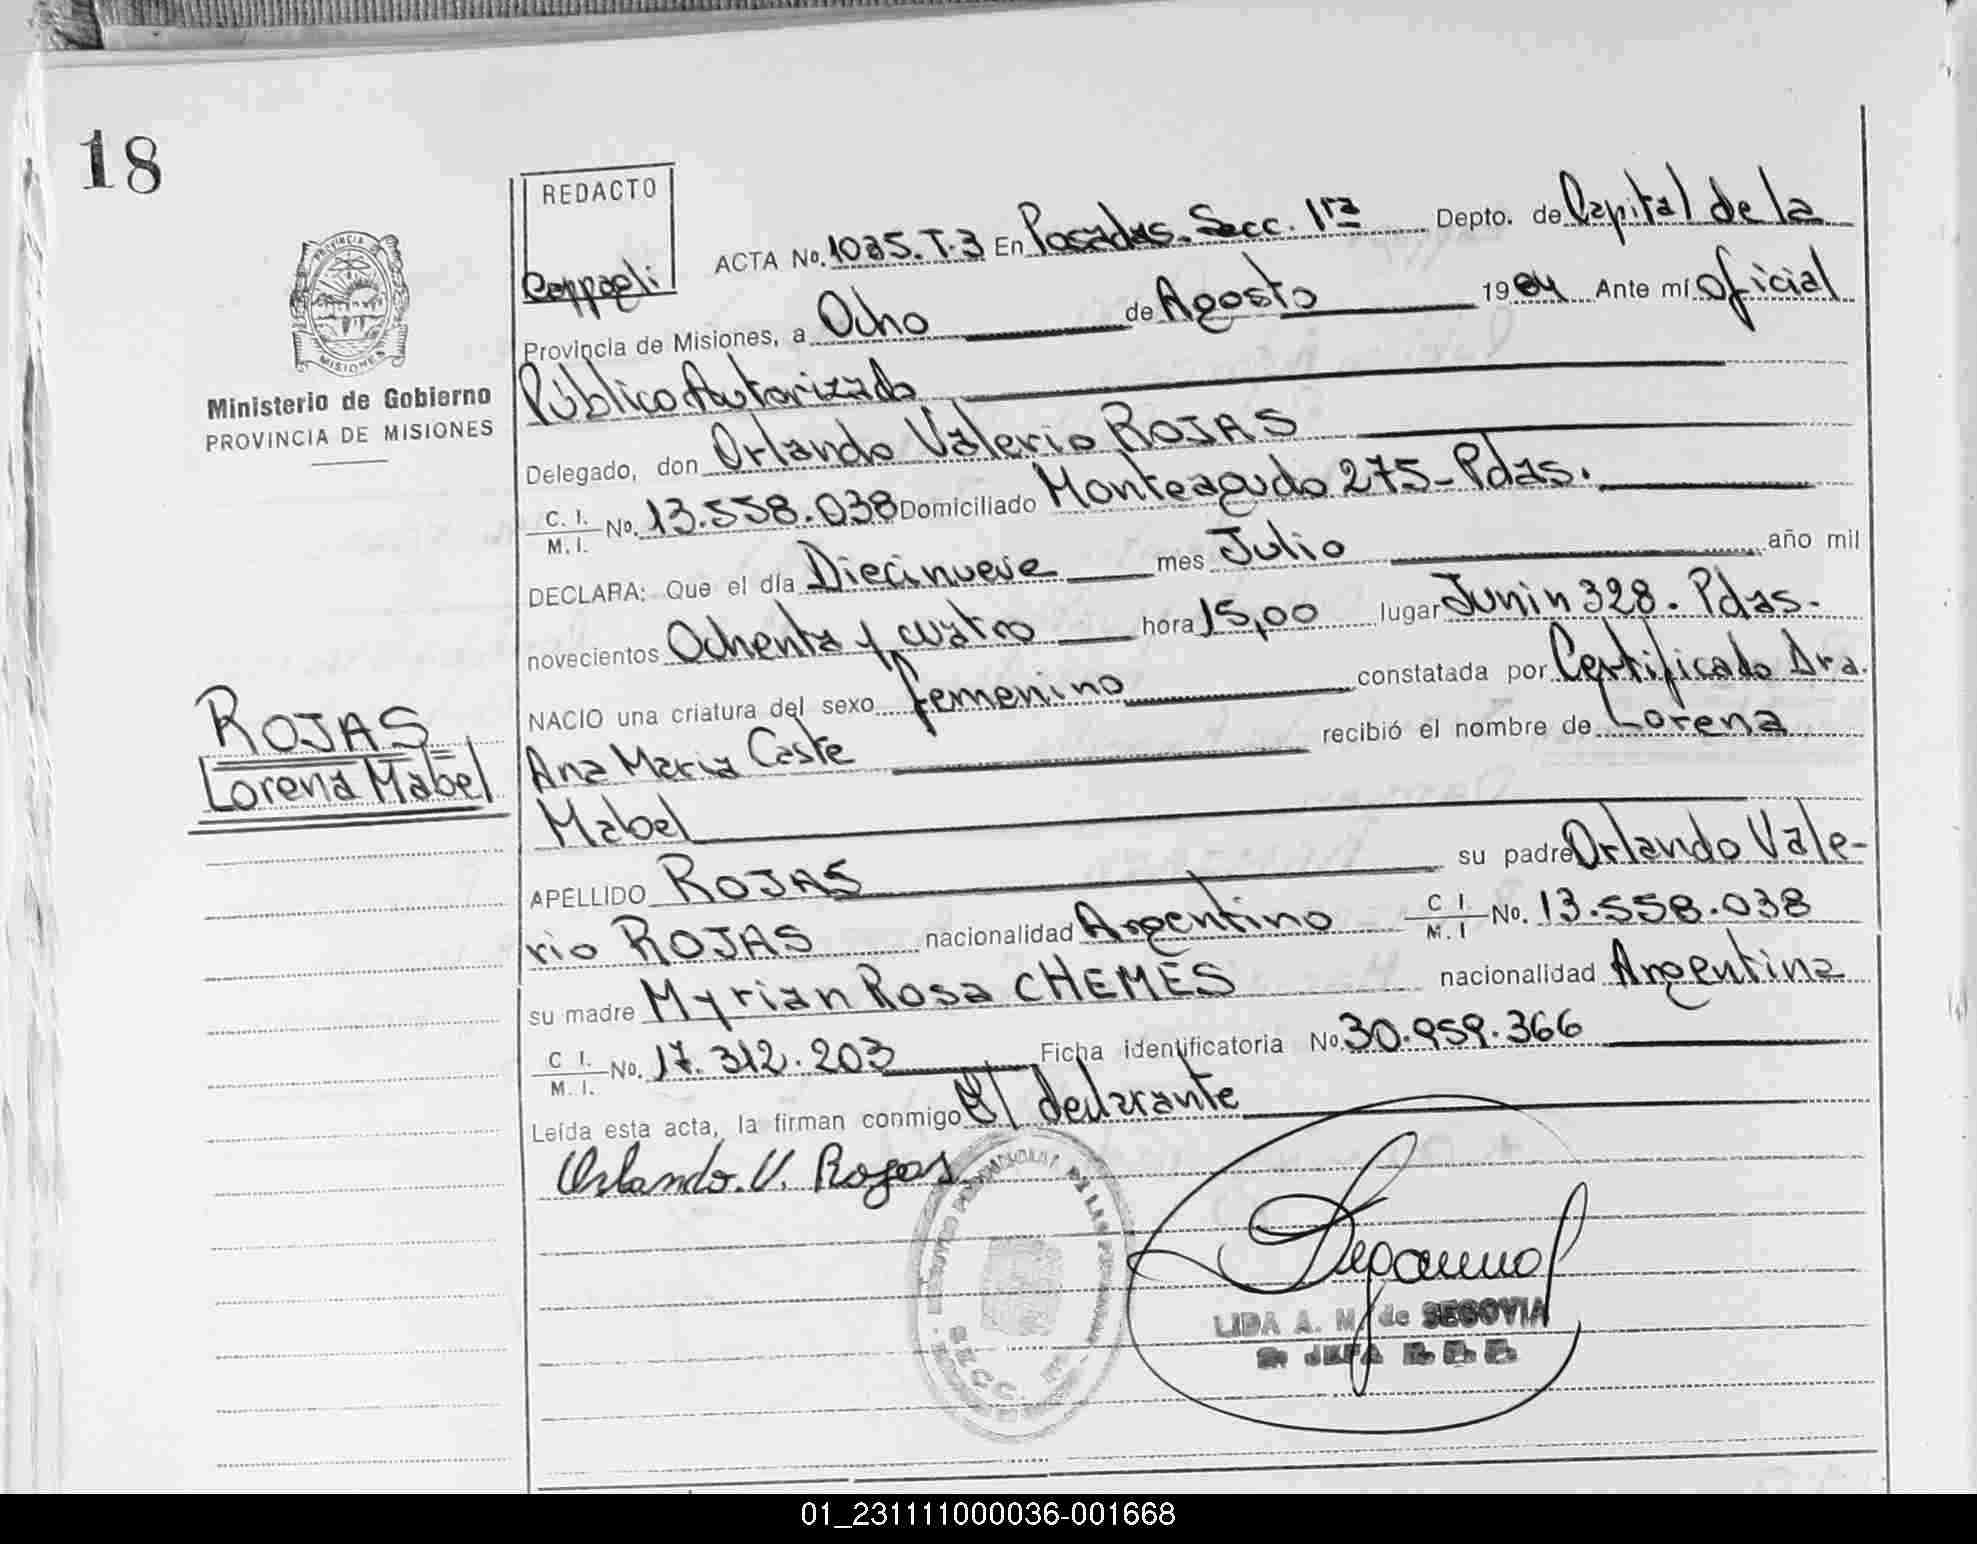 18
REDACTO
Coppagli
PROVINCIA
MISIONES
Ministerio de Gobierno
PROVINCIA DE MISIONES
ROJAS
Lorena Mabel
ACTA No. 1035.T.3 En Posadas. Secc. 1ra Depto. de Capital de la
Provincia de Misiones, a Ocho de Agosto 1984 Ante mí Oficial
Público Autorizado
Delegado, don Orlando Valerio ROJAS
C. I. / M. I. No. 13.558.038 Domiciliado Monteagudo 275-Pdas.
DECLARA: Que el día Diecinueve mes Julio año mil
novecientos Ochenta y cuatro hora 15,00 lugar Junin 328. Pdas.
NACIO una criatura del sexo femenino constatada por Certificado Dra.
Ana Maria Caste recibió el nombre de Lorena
Mabel
APELLIDO ROJAS su padre Orlando Vale-
rio ROJAS nacionalidad Argentino C I. / M. I No. 13.558.038
su madre Myrian Rosa CHEMES nacionalidad Argentina
C I. / M. I. No. 17.312.203 Ficha identificatoria No. 30.959.366
Leída esta acta, la firman conmigo El declarante
Orlando. V. Rojas
SECC. 1ra
LIDA A. M. de SEGOVIA
JEFA
01_231111000036-001668